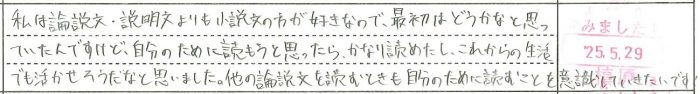 私は論説文・説明文よりも小説文の方が好きなので、最初はどうかなと思っ
ていたんですけど、自分のために読もうと思ったら、かなり読めたし、これからの生活
でも活かせそうだなと思いました。他の論説文を読むときも自分のために読むことを意識していきたいです
みました
'25.5.29